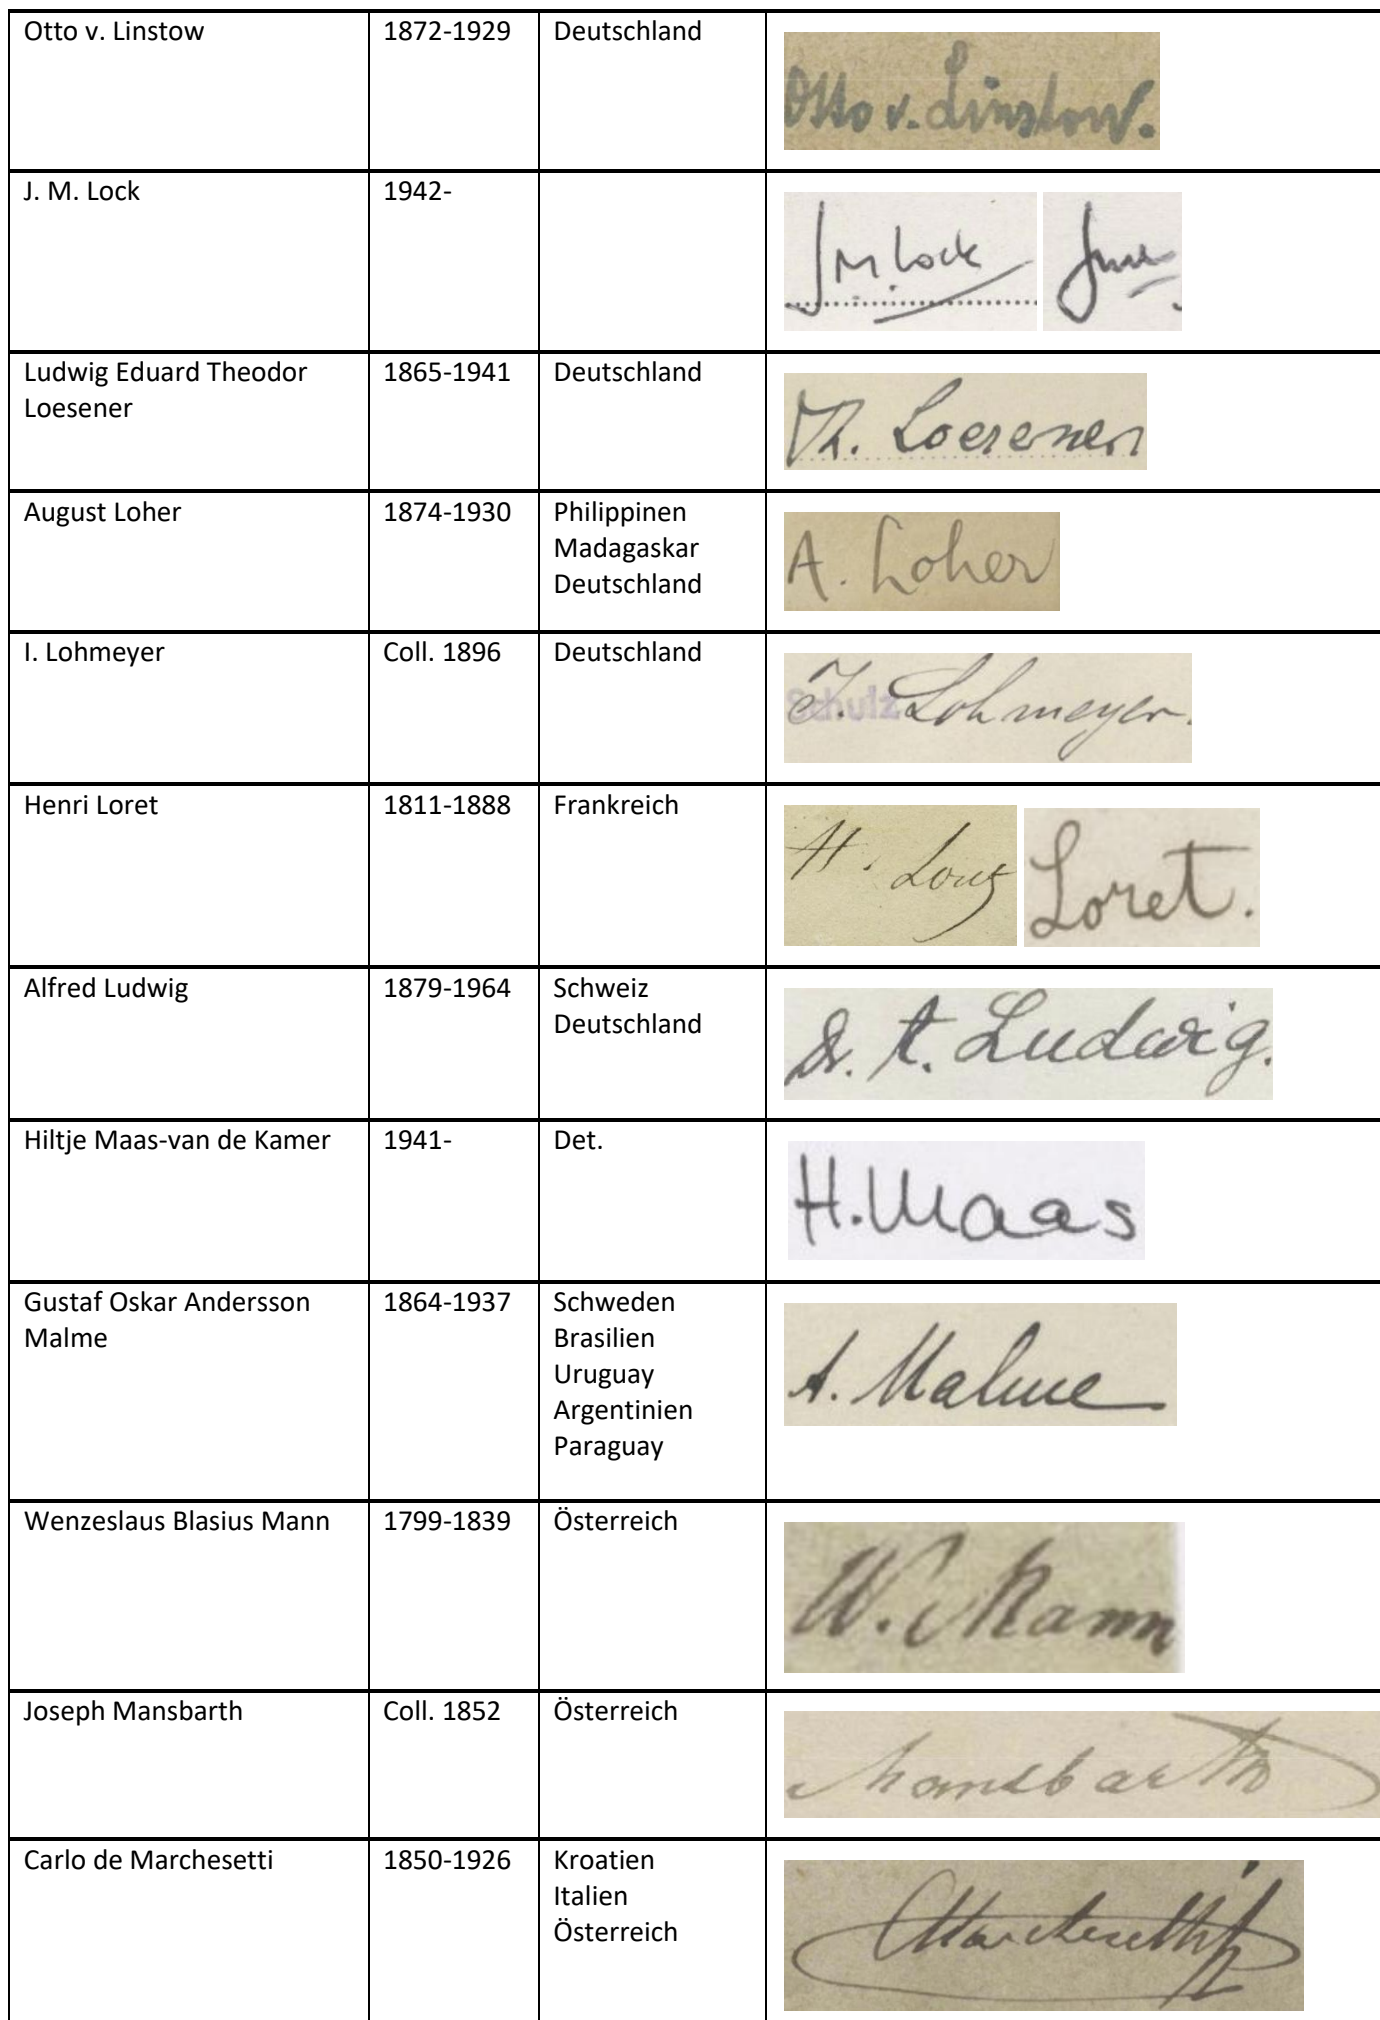 Otto v. Linstow 1872-1929 Deutschland Otto v. Linstow.
J. M. Lock 1942- J M Lock
Ludwig Eduard Theodor 1865-1941 Deutschland Th. Loesener
Loesener
August Loher 1874-1930 Philippinen A. Loher
Madagaskar
Deutschland
I. Lohmeyer Coll. 1896 Deutschland Schulz I. Lohmeyer.
Henri Loret 1811-1888 Frankreich H. Loret Loret.
Alfred Ludwig 1879-1964 Schweiz Dr. A. Ludwig.
Deutschland
Hiltje Maas-van de Kamer 1941- Det. H. Maas
Gustaf Oskar Andersson 1864-1937 Schweden A. Malme
Malme Brasilien
Uruguay
Argentinien
Paraguay
Wenzeslaus Blasius Mann 1799-1839 Österreich W. Mann
Joseph Mansbarth Coll. 1852 Österreich Mansbarth
Carlo de Marchesetti 1850-1926 Kroatien Marchesetti
Italien
Österreich